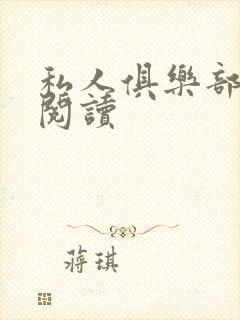 私人俱樂部
閱讀
蔣琪